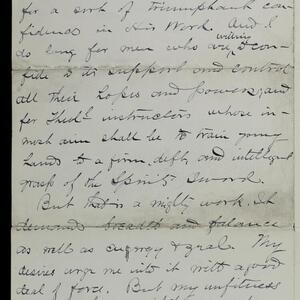 for a sort of triumphant con-
fidence in His Work. And I
do long for men who are willing to con-
fide to its support and control
all their hopes and powers; and
for Theol. instructors whose in-
most aim shall be to train young
hands to a firm, deft, and intelligent
grasp of the Spirit's Sword.
But that is a mighty work. It
demands breadth and balance
as well as energy & zeal. My
desires urge me into it with a good
deal of force. But my unfitness